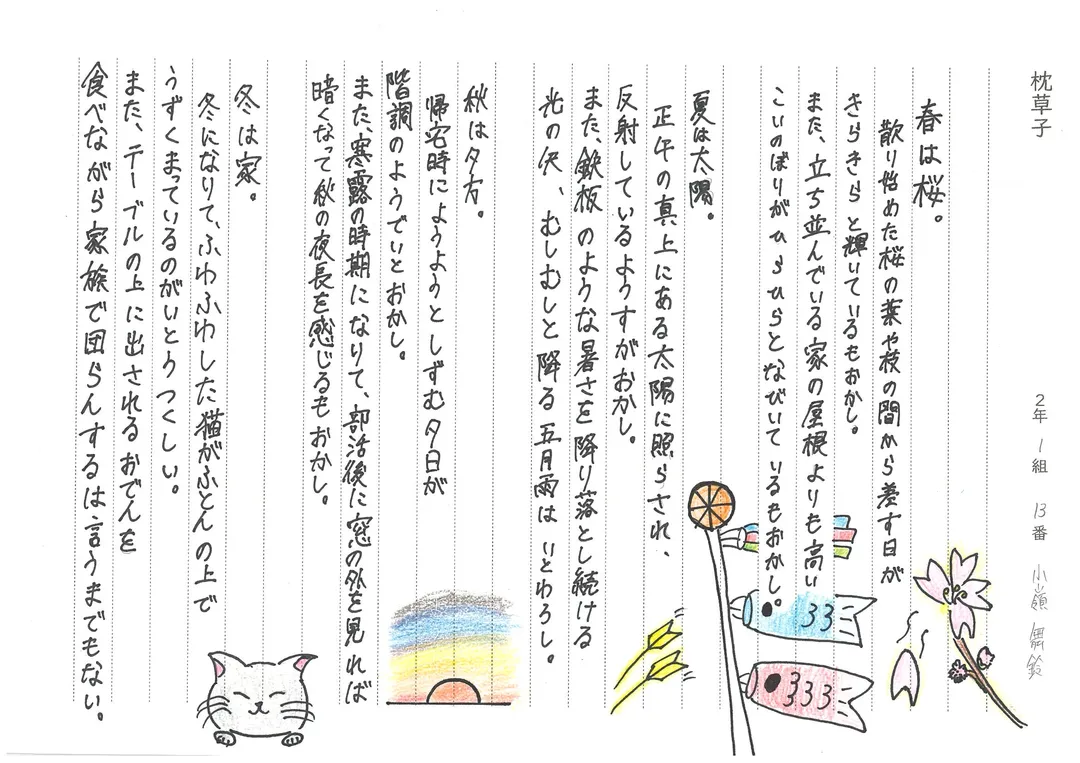 枕草子
2年 1組 13番 小嶺 舞鈴
春は桜。
散り始めた桜の葉や枝の間から差す日が
きらきらと輝いているもおかし。
また、立ち並んでいる家の屋根よりも高い
こいのぼりがひらひらとなびいているもおかし。
夏は太陽。
正午の真上にある太陽に照らされ、
反射しているようすがおかし。
また、鉄板のような暑さを降り落とし続ける
光の矢、むしむしと降る五月雨はいとわろし。
秋は夕方。
帰宅時にようようとしずむ夕日が
階調のようでいとおかし。
また、寒露の時期になりて、部活後に窓の外を見れば
暗くなって秋の夜長を感じるもおかし。
冬は家。
冬になりて、ふわふわした猫がふとんの上で
うずくまっているのがいとうつくしい。
また、テーブルの上に出されるおでんを
食べながら家族で団らんするは言うまでもない。